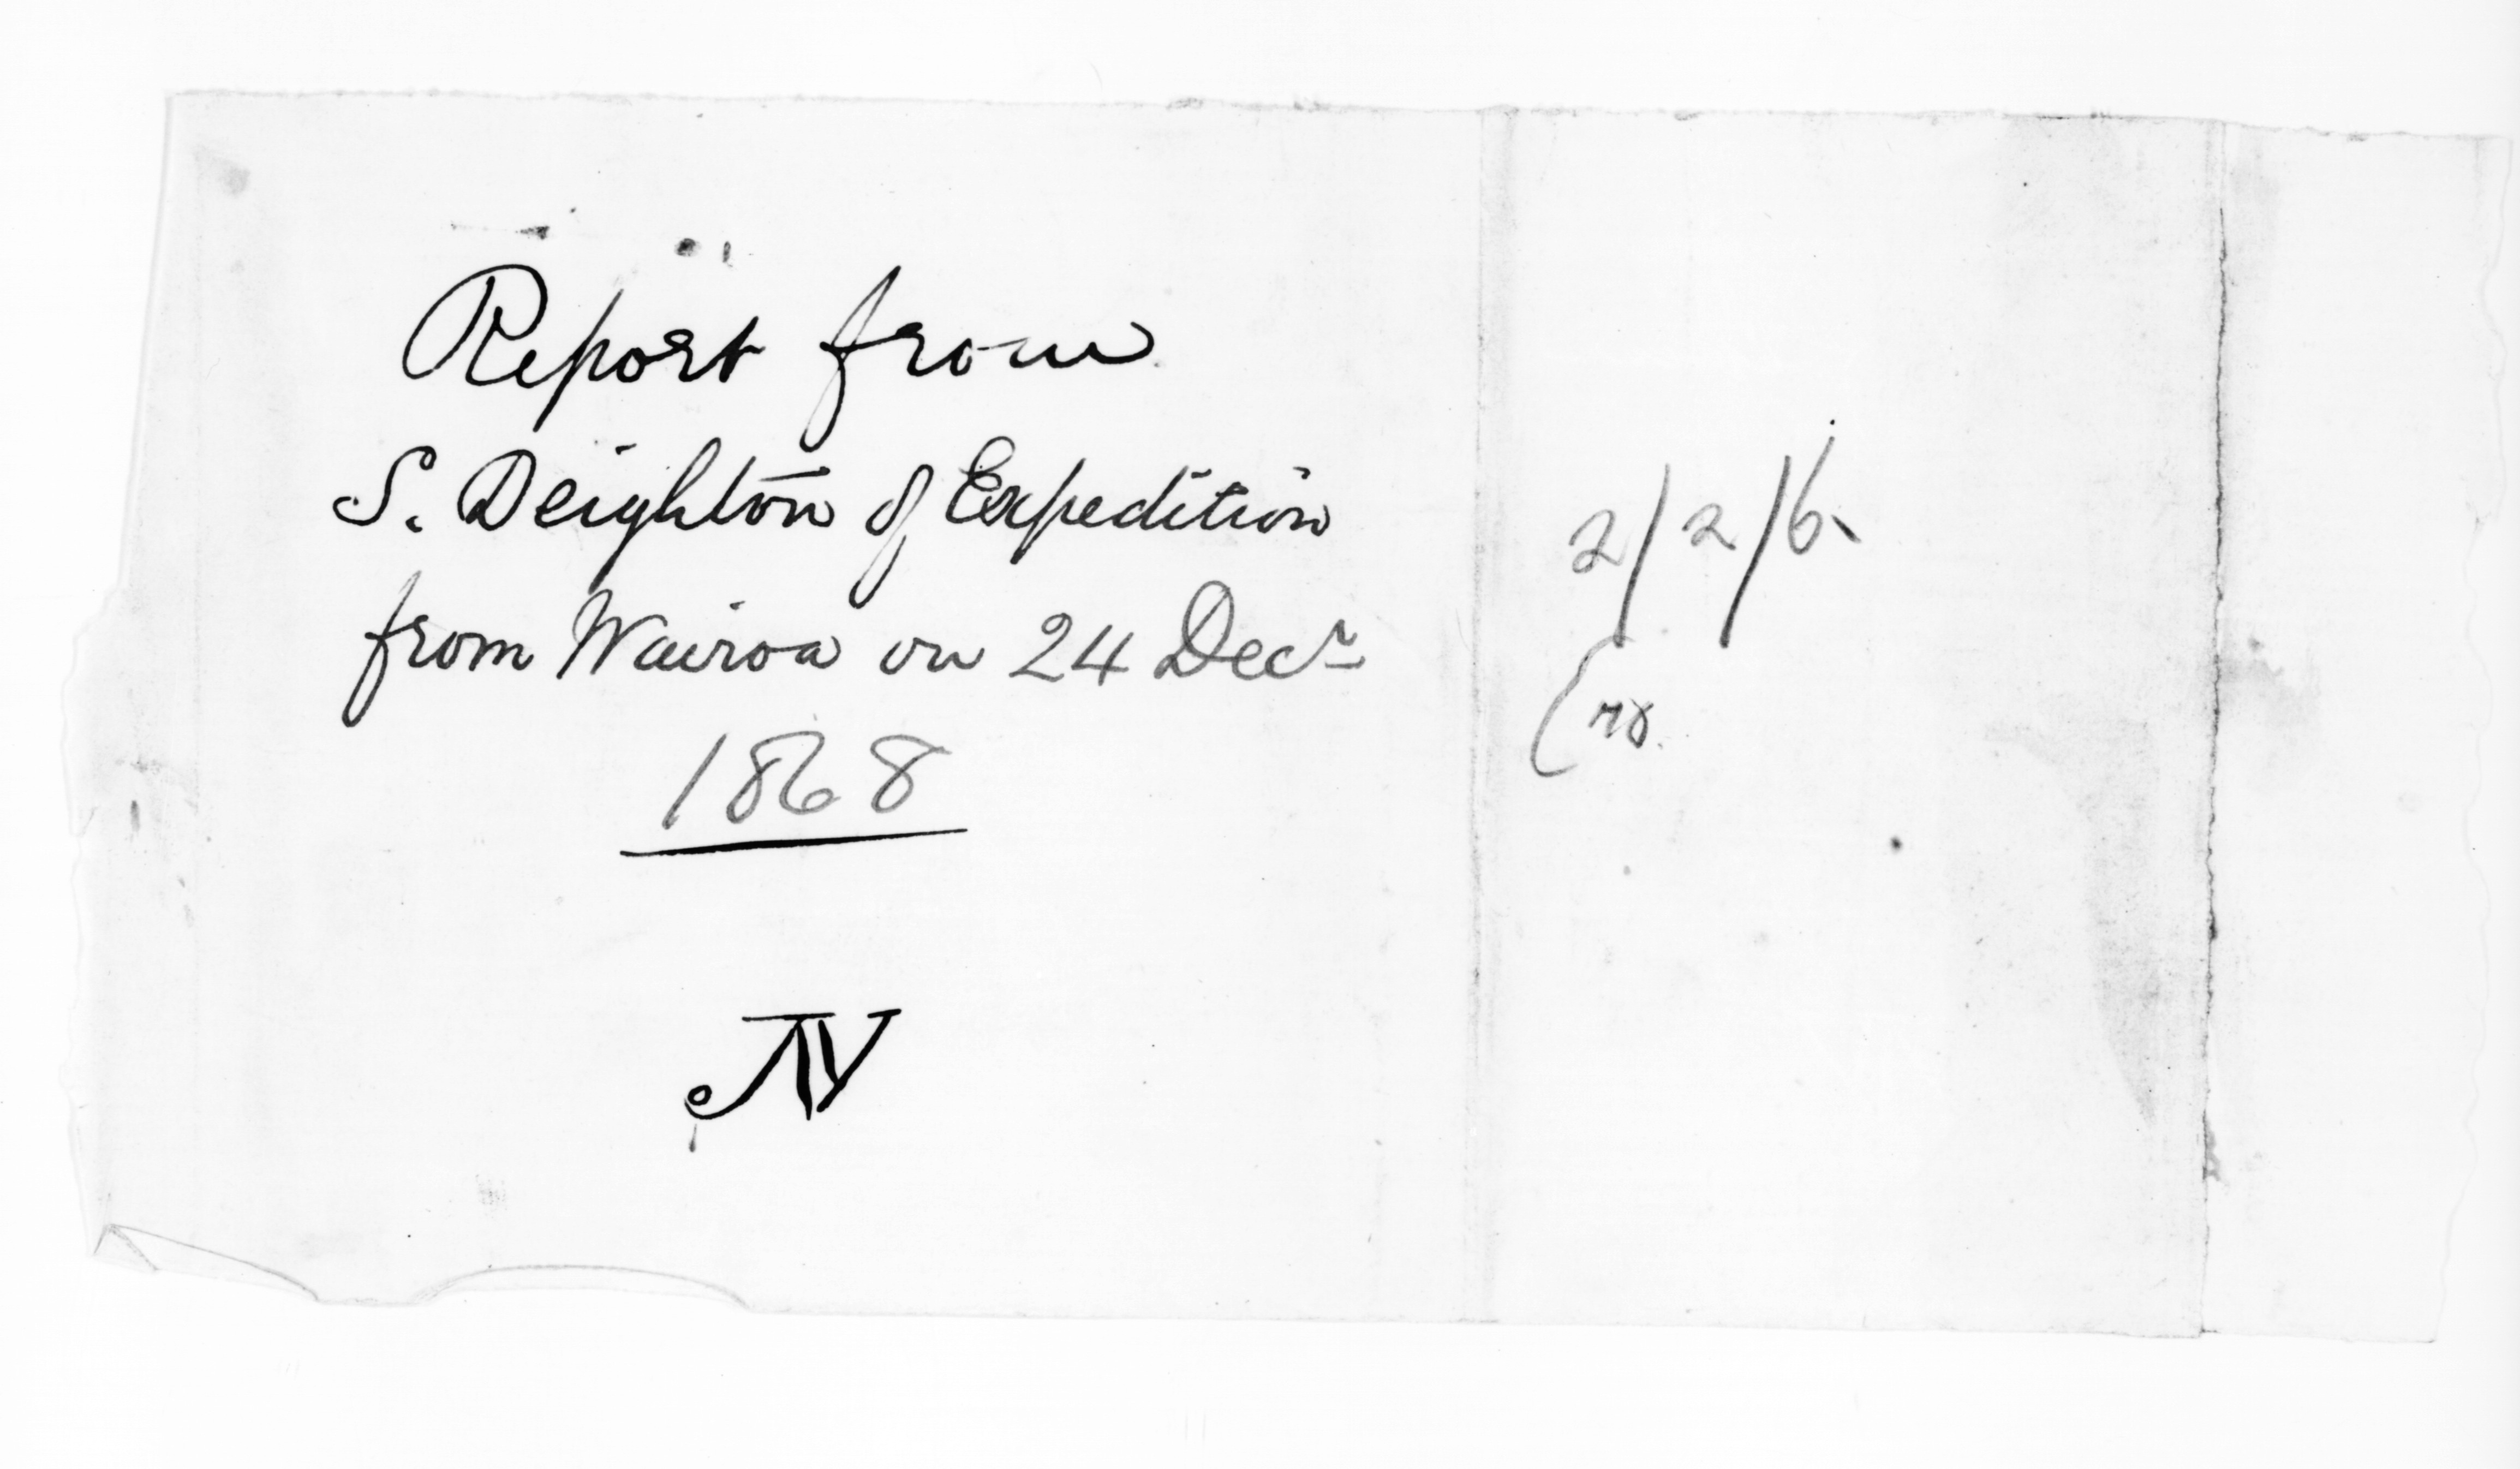 Report from
S. Deighton of Expedition
from Wairoa on 24 Decr
1868
2/2/6